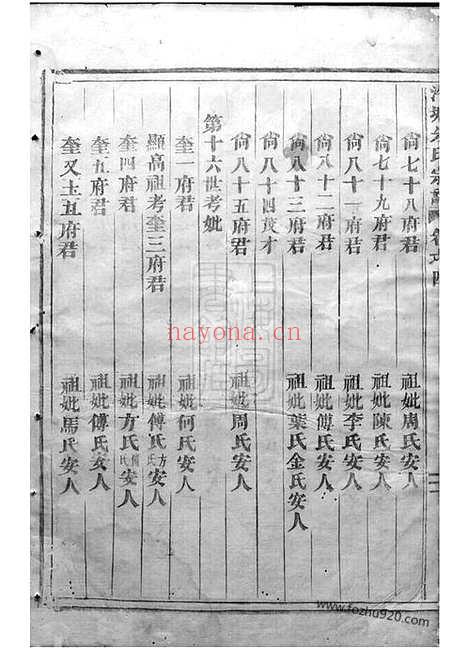 尙七十八府君 祖妣周氏安人
尙七十九府君 祖妣陳氏安人
尙八十一府君 祖妣李氏安人
尙八十二府君 祖妣傅氏安人
尙八十三府君 祖妣葉氏金氏安人
尙八十四茂才
尙八十五府君 祖妣周氏安人
第十六世考妣
奎一府君 祖妣何氏安人
顯高祖考奎三府君 祖妣傅氏方氏安人
奎四府君 祖妣方氏氏安人
奎五府君 祖妣傅氏安人
奎又五府君 祖妣馬氏安人
氏宗譜
nayona.cn
www.fozhu920.com